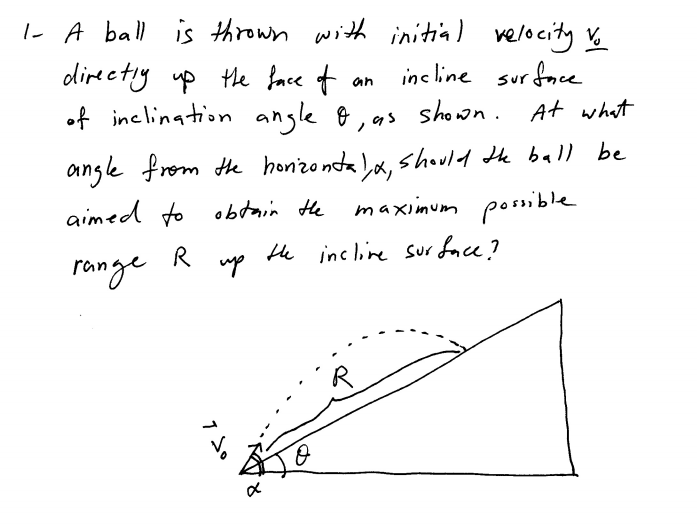 1- A ball is thrown with initial velocity V₀
directly up the face of an incline surface
of inclination angle θ, as shown. At what
angle from the horizontal, α, should the ball be
aimed to obtain the maximum possible
range R up the incline surface?
R
V₀
θ
α